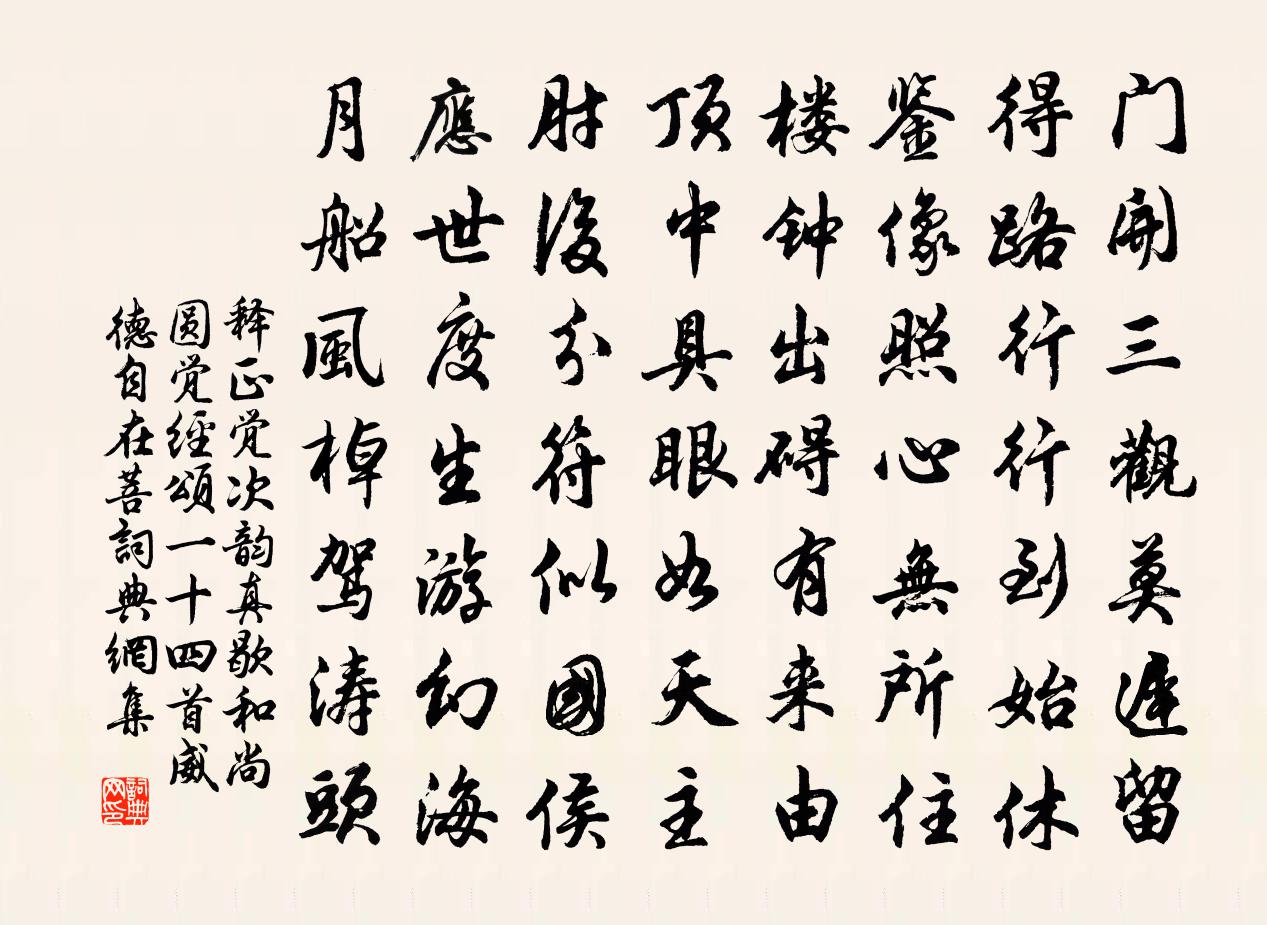 门開三觀莫遲留
得路行行到始休
鉴像照心無所住
楼钟出碍有来由
頂中具眼如天主
肘後分符似國侯
應世度生游幻海
月船風棹驾涛頭
释正觉次韵真歇和尚
圆觉經頌一十四首威
德自在菩詞典網集
詞典
网印